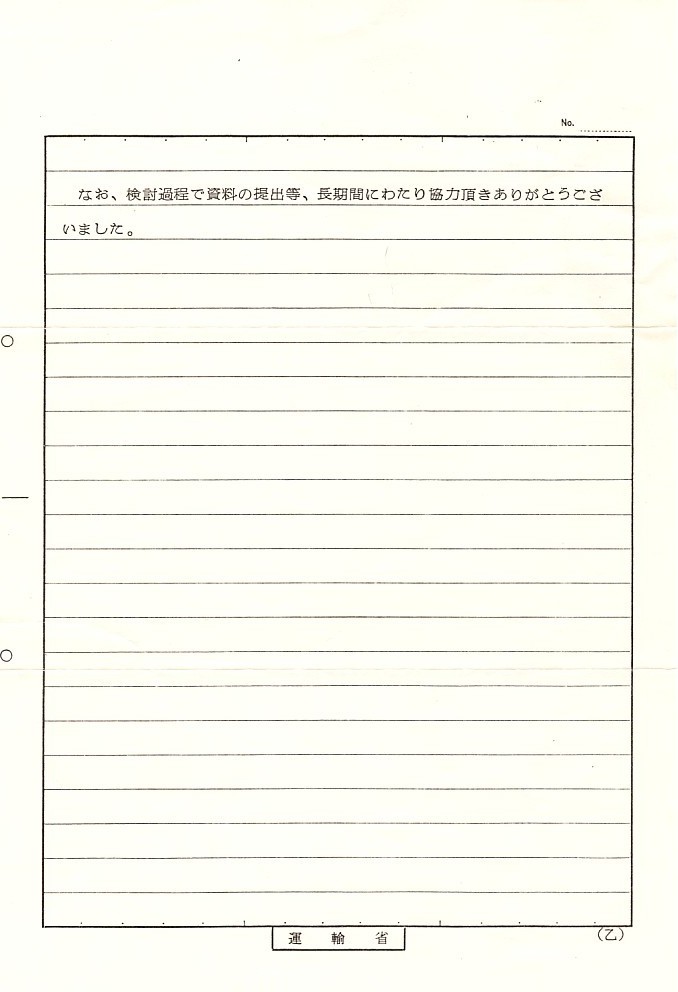 No.
なお、検討過程で資料の提出等、長期間にわたり協力頂きありがとうござ
いました。
運輸省
(乙)